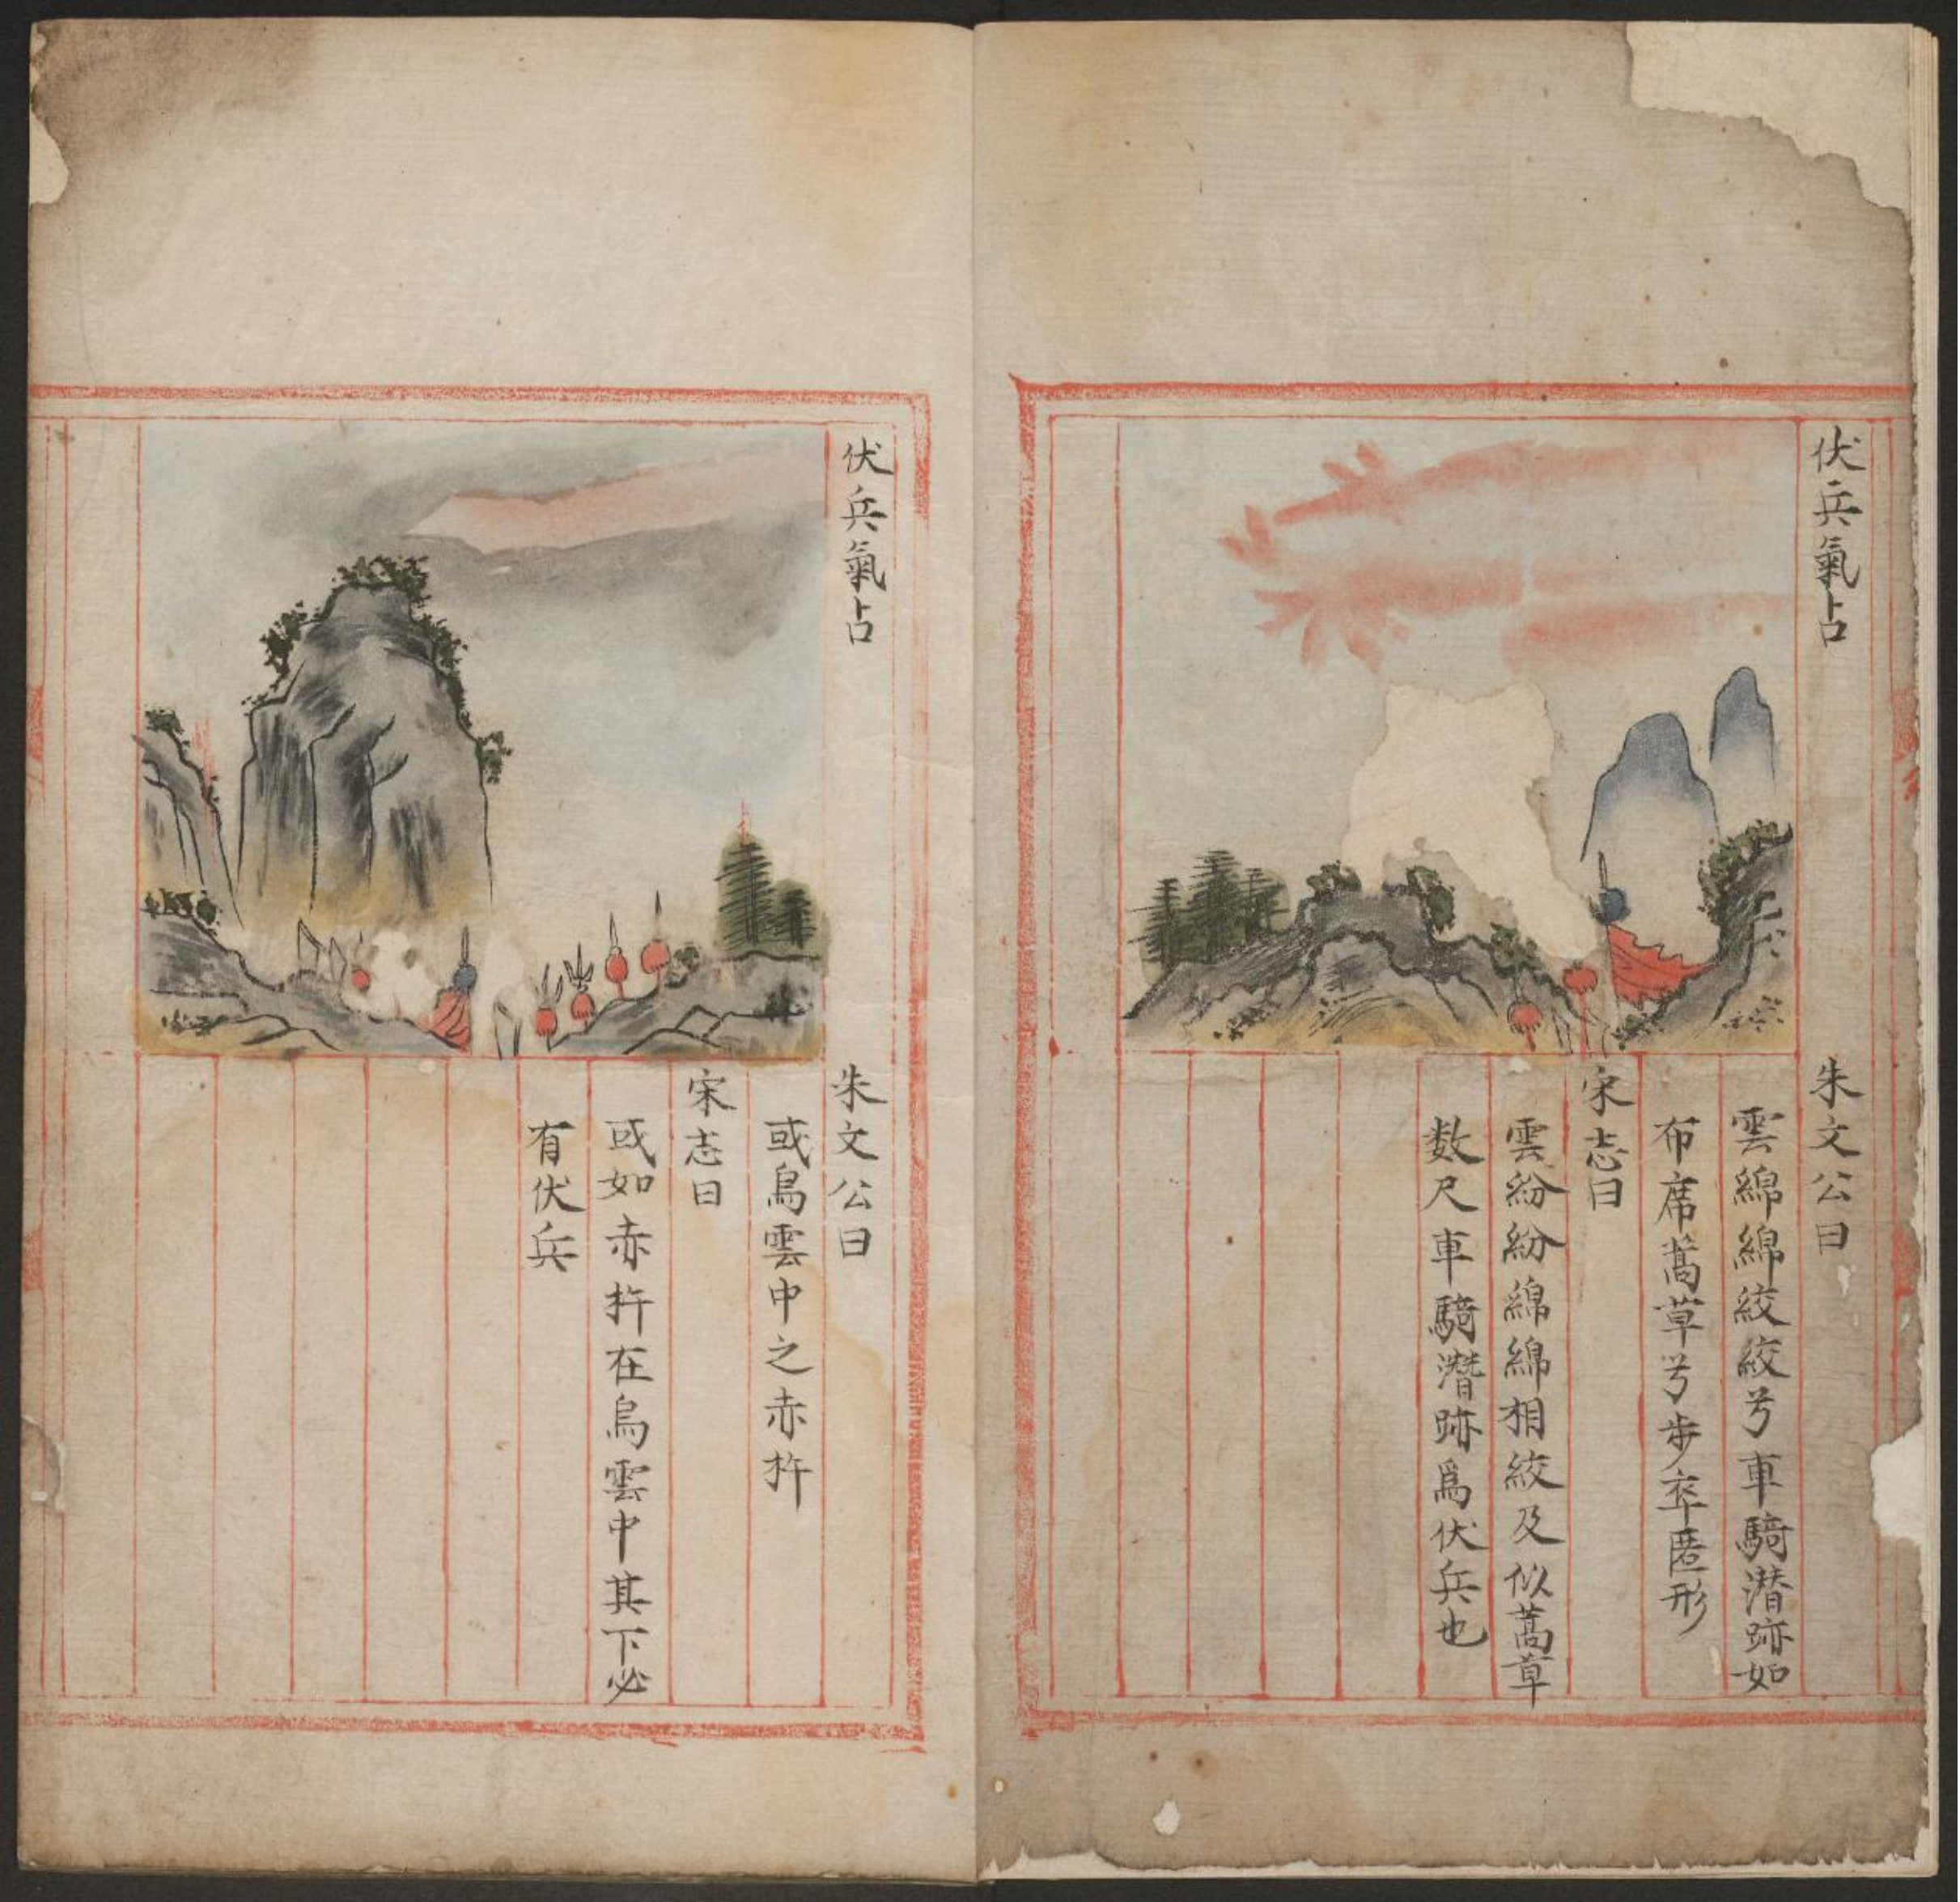 伏兵氣占
朱文公曰
雲綿綿絞絞兮車騎潛跡如
布席蒿草兮步卒匿形
宋志曰
雲紛紛綿綿相絞及似蒿草
数尺車騎潛跡爲伏兵也
伏兵氣占
朱文公曰
或烏雲中之赤杵
宋志曰
或如赤杵在烏雲中其下必
有伏兵